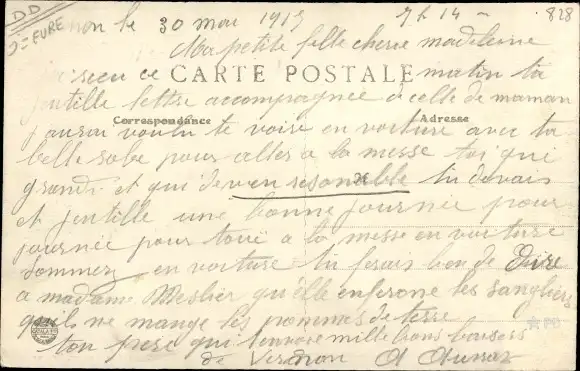 DD
D= EURE
non le 30 mai 1915 7h 14 828
Ma petite fille cherie madeleine
recu ce matin ta
CARTE POSTALE
jentille lettre accompagnée de celle de maman
Correspondance Adresse
jaurai voulu te voire en voiture avec ta
belle robe pour aller a la messe toi qui
grandi et qui devien resonable tu devais
et jentille une bonne journée pour
journée pour toué a la messe en voiture
en voiture tu ferais bon de dire
a madame qu'elle enferone les sangliers
quils ne mange les pommes de terre
ton pere qui t'envoie mille bons baisers
de Vernon A